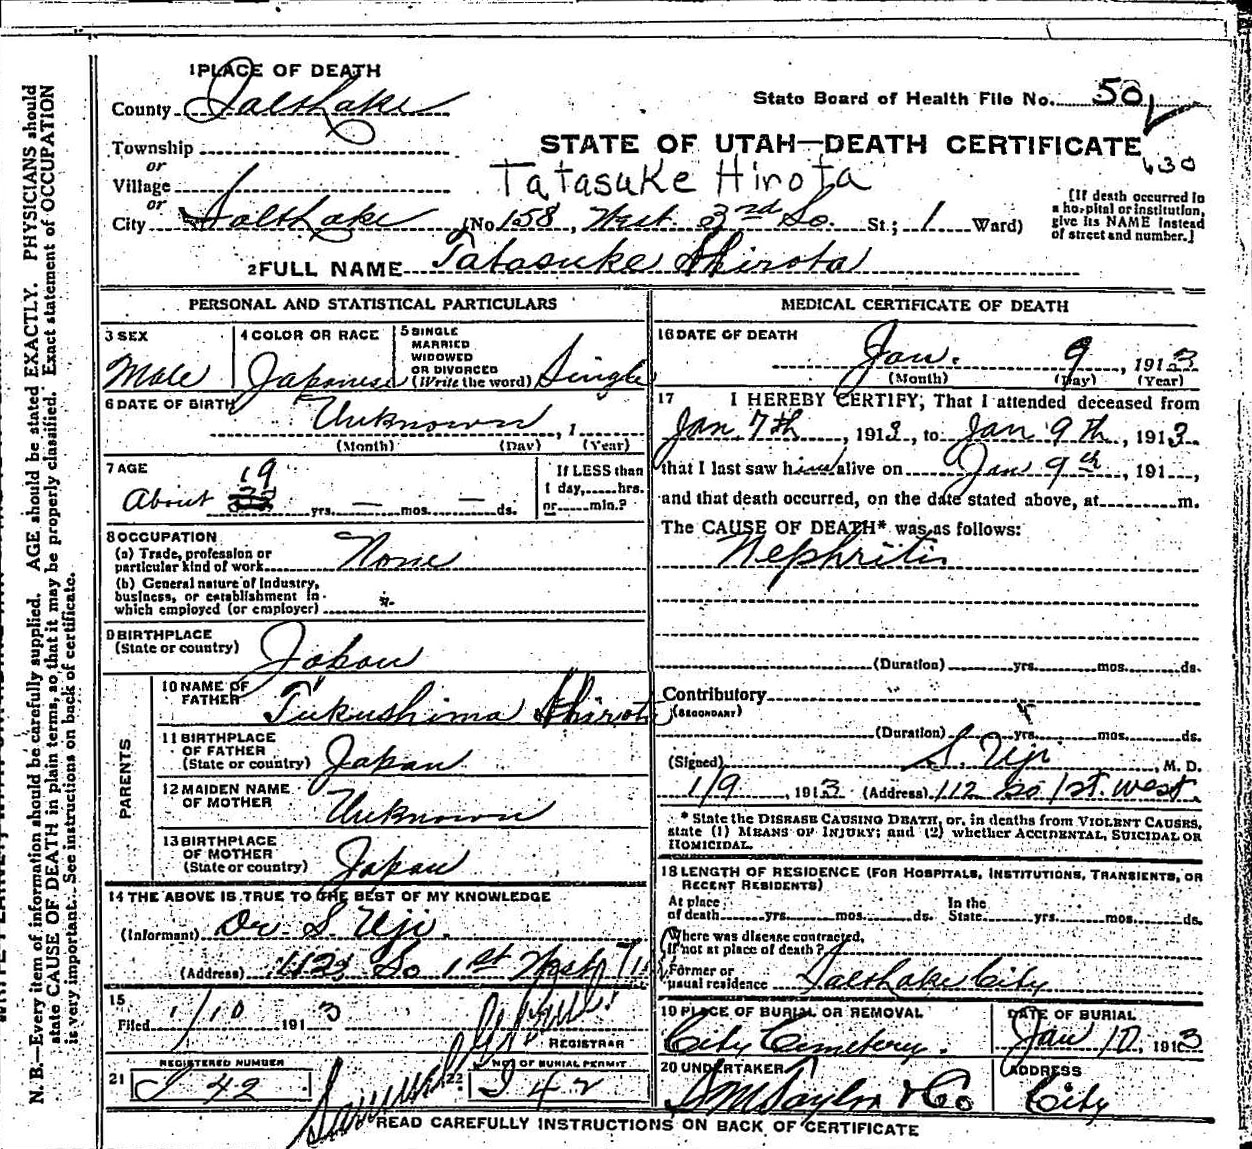 1 PLACE OF DEATH
County Salt Lake
State Board of Health File No. 50
Township
STATE OF UTAH—DEATH CERTIFICATE
or
Village
Tatasuke Hirota
630
or
City Salt Lake (No. 158, West 3rd So. St.; 1 Ward)
[If death occurred in a hospital or institution, give its NAME instead of street and number.]
2 FULL NAME Tatasuke Shirota
PERSONAL AND STATISTICAL PARTICULARS
3 SEX Male
4 COLOR OR RACE Japanese
5 SINGLE MARRIED WIDOWED OR DIVORCED (Write the word) Single
6 DATE OF BIRTH Unknown, 1
(Month) (Day) (Year)
7 AGE
About 19 yrs. — mos. — ds.
If LESS than 1 day, hrs. or min.?
8 OCCUPATION
(a) Trade, profession or particular kind of work None
(b) General nature of industry, business, or establishment in which employed (or employer)
9 BIRTHPLACE
(State or country) Japan
PARENTS
10 NAME OF FATHER Tukushima Shirota
11 BIRTHPLACE OF FATHER (State or country) Japan
12 MAIDEN NAME OF MOTHER Unknown
13 BIRTHPLACE OF MOTHER (State or country) Japan
14 THE ABOVE IS TRUE TO THE BEST OF MY KNOWLEDGE
(Informant) Dr. S. Uji.
(Address) So 1st West
15
Filed 1/10 1913
REGISTRAR
REGISTERED NUMBER
21 J 42
NO. OF BURIAL PERMIT
22 J 42
MEDICAL CERTIFICATE OF DEATH
16 DATE OF DEATH
Jan. 9, 1913
(Month) (Day) (Year)
17 I HEREBY CERTIFY, That I attended deceased from
Jan. 7th, 1913, to Jan 9th, 1913
that I last saw him alive on Jan 9th, 191 ,
and that death occurred, on the date stated above, at m.
The CAUSE OF DEATH* was as follows:
Nephritis
(Duration) yrs. mos. ds.
Contributory
(SECONDARY)
(Duration) yrs. mos. ds.
(Signed) S. Uji, M. D.
1/9, 1913 (Address) 112 So 1st. West.
* State the DISEASE CAUSING DEATH, or, in deaths from VIOLENT CAUSES, state (1) MEANS OF INJURY; and (2) whether ACCIDENTAL, SUICIDAL OR HOMICIDAL.
18 LENGTH OF RESIDENCE (FOR HOSPITALS, INSTITUTIONS, TRANSIENTS, OR RECENT RESIDENTS)
At place of death yrs. mos. ds. In the State yrs. mos. ds.
Where was disease contracted, if not at place of death?
Former or usual residence Salt Lake City
19 PLACE OF BURIAL OR REMOVAL
City Cemetery.
DATE OF BURIAL
Jan 10, 1913
20 UNDERTAKER
S M Taylor & Co
ADDRESS
City
READ CAREFULLY INSTRUCTIONS ON BACK OF CERTIFICATE
N. B.—Every item of information should be carefully supplied. AGE should be stated EXACTLY. PHYSICIANS should
state CAUSE OF DEATH in plain terms, so that it may be properly classified. Exact statement of OCCUPATION
is very important. See instructions on back of certificate.